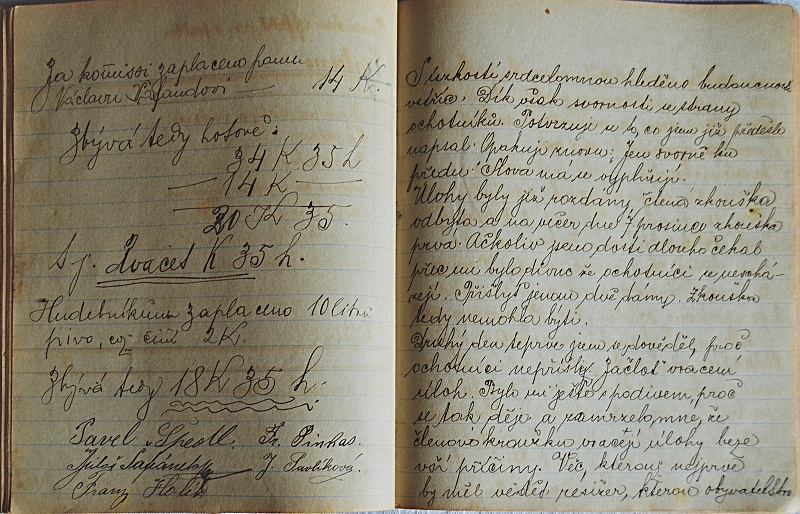 Za komissi zaplaceno panu
Václavu 14 K.
Zbývá tedy hotově:
34 K 35 h
14 K
20 K 35.
t.j. Dvacet K 35 h.
Hudebníkům zaplaceno 10 litrů
piva, což činí 2K.
Zbývá tedy 18 K 35 h.
Pavel Fr. Pinkas.
Miloš J. Pavlíková.
Franz Holík
S úzkostí srdcelomnou hleděno budoucnosti
vstříc. Dík však svornosti se strany
ochotníků. Potvrzuje se to, co jsem již předešle
napsal. Opakuji znovu: Jen svorně ku
předu. Slova má se vyplňují.
Úlohy byly již rozdány čtená zkouška
odbyta a na večer dne 7. prosince zkouška
prvá. Ačkoliv jsem dosti dlouho čekal
přec mi bylo divno že ochotníci se neschá-
zejí. Přišlyť jenom dvě dámy. Zkouška
tedy nemohla býti.
Druhý den teprve jsem se dověděl, proč
ochotníci nepřišli. Začlot vracení
úloh. Bylo mi ještě s podivem, proč
se tak děje a zamrzelo mne, že
členové kroužku vracejí úlohy beze
vší příčiny. Věc, kterou nejprvě
by měl věděti resižer, kterou obyvatelstvo